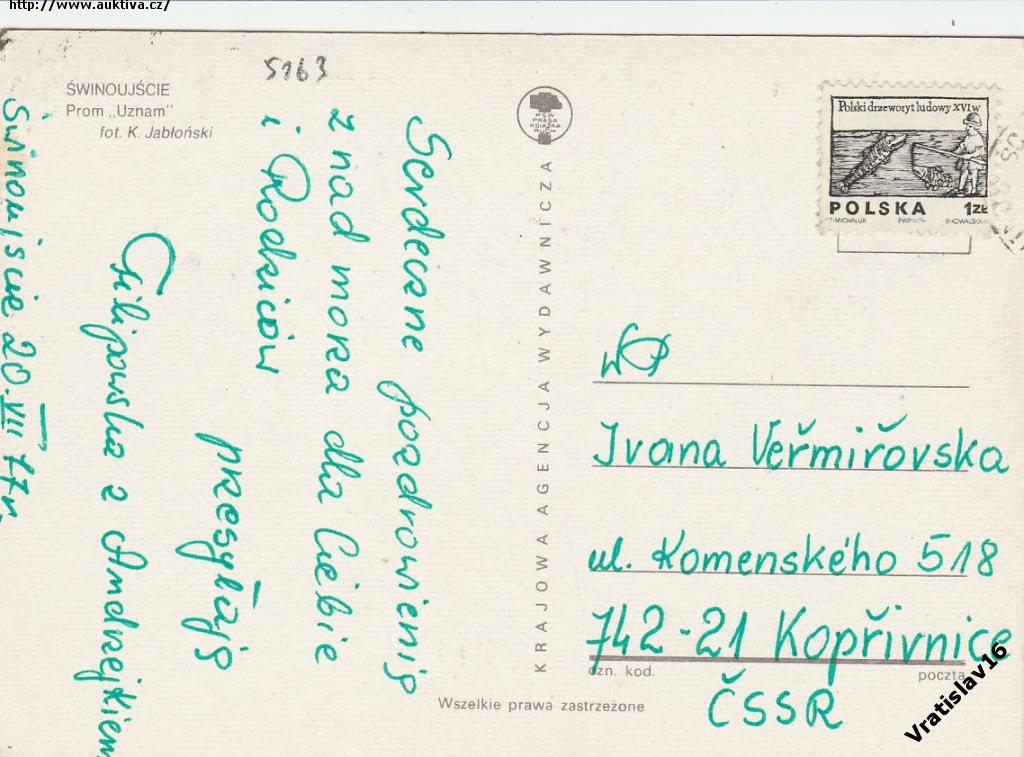 http://www.auktiva.cz/
5163
ŚWINOUJŚCIE
Prom „Uznam”
fot. K. Jabłoński
Świnoujście 20.VII 77r.
Serdeczne pozdrowienia
znad morza dla Ciebie
i Rodziców
przesyłają
Filipowska z Andrzejkiem
PSW
PRASA
KSIĄŻKA
RUCH
KRAJOWA AGENCJA WYDAWNICZA
Wszelkie prawa zastrzeżone
Polski drzeworyt ludowy XVI w
POLSKA 1ZŁ
T·MICHALUK PWPW
WP
Ivana Veřmiřovska
ul. Komenského 518
742-21 Kopřivnice
ozn. kod. poczta
ČSSR
Vratislav16